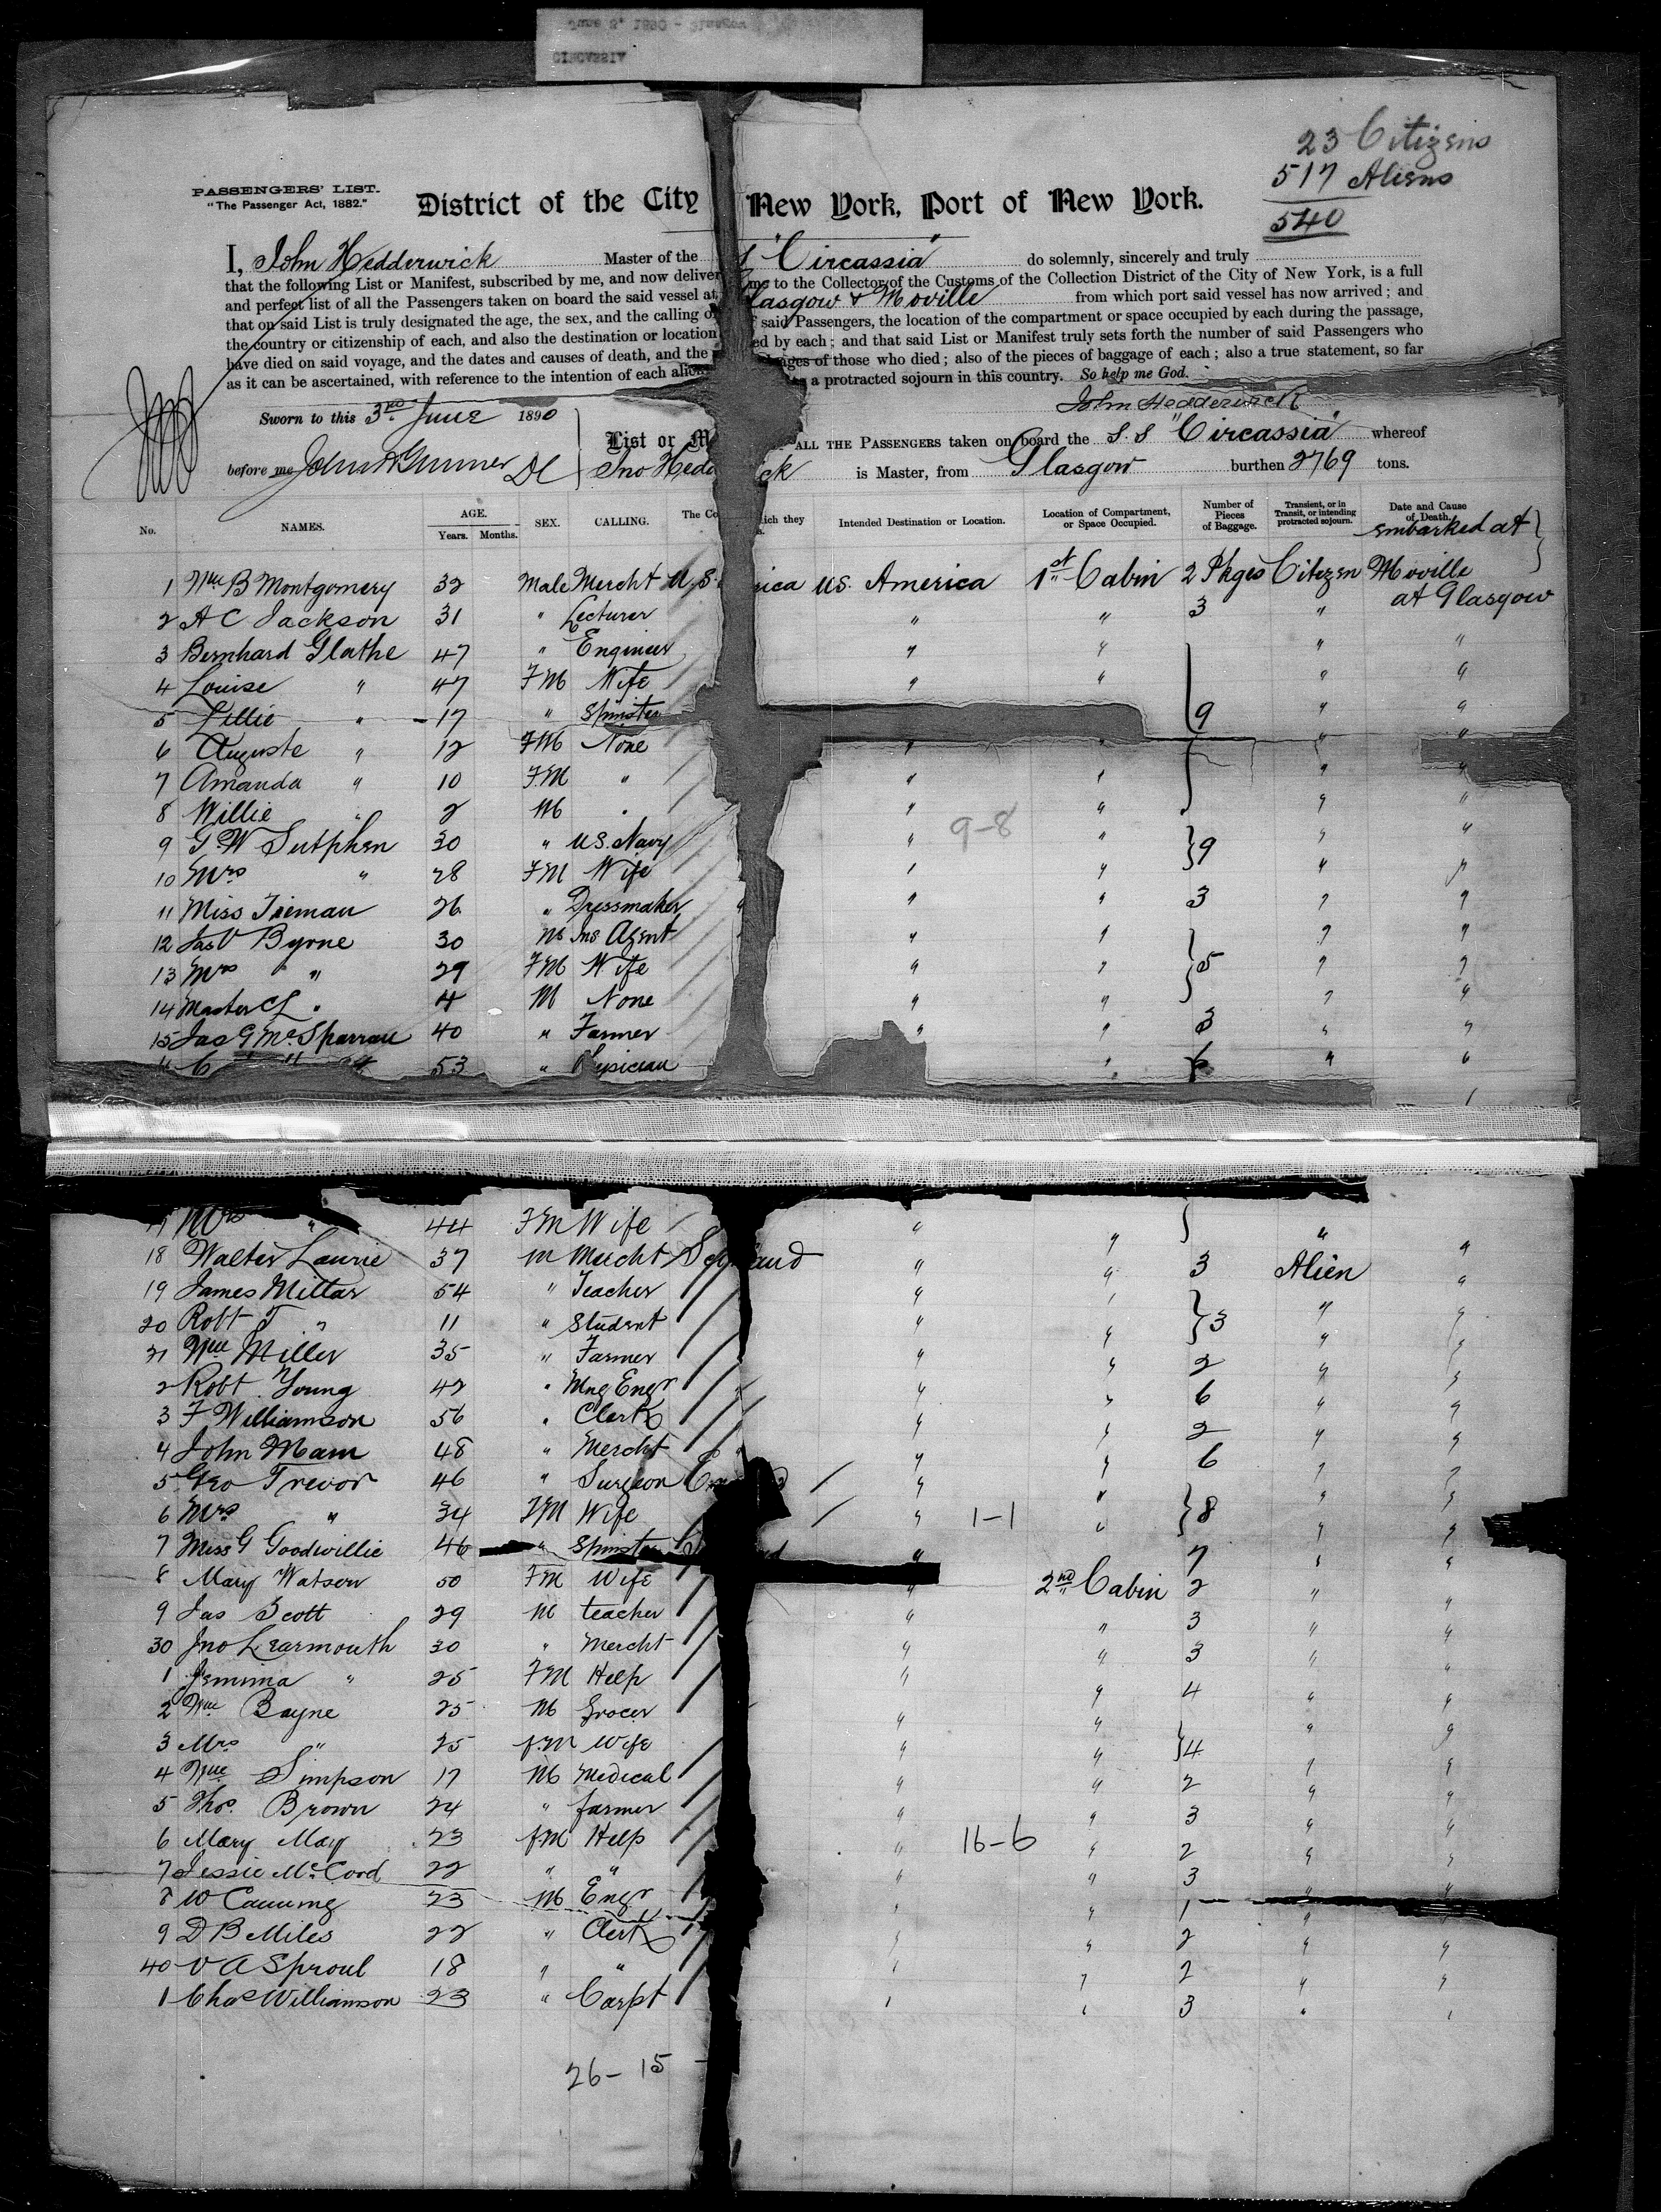 June 3, 1890 - Glasgow
CIRCASSIA
23 Citizens
517 Aliens
540
PASSENGERS' LIST.
"The Passenger Act, 1882."
District of the City New York, Port of New York.
I, John Hedderwick Master of the S "Circassia" do solemnly, sincerely and truly
that the following List or Manifest, subscribed by me, and now deliver me to the Collector of the Customs of the Collection District of the City of New York, is a full
and perfect list of all the Passengers taken on board the said vessel at Glasgow & Moville from which port said vessel has now arrived; and
that on said List is truly designated the age, the sex, and the calling of said Passengers, the location of the compartment or space occupied by each during the passage,
the country or citizenship of each, and also the destination or location ed by each; and that said List or Manifest truly sets forth the number of said Passengers who
have died on said voyage, and the dates and causes of death, and the ages of those who died; also of the pieces of baggage of each; also a true statement, so far
as it can be ascertained, with reference to the intention of each alien a protracted sojourn in this country. So help me God.
John Hedderwick
Sworn to this 3rd June 1890
List or M ALL THE PASSENGERS taken on board the S.S "Circassia" whereof
before me Jno Hedd ck is Master, from Glasgow burthen 2769 tons.
No. NAMES. AGE. Years. Months. SEX. CALLING. The Co ich they Intended Destination or Location. Location of Compartment, or Space Occupied. Number of Pieces of Baggage. Transient, or in Transit, or intending protracted sojourn. Date and Cause of Death.
Embarked at
1 Wm B Montgomery 32 Male Mercht U.S. rica US. America 1st Cabin 2 Pkges Citizen Moville
2 A C Jackson 31 " Lecturer " " 3 " at Glasgow
3 Bernhard Glathe 47 " Engineer " " " "
4 Louise " 47 FM Wife " " " "
5 Lillie " 17 " Spinster 9 " "
6 Auguste " 12 FM None " " " "
7 Amanda " 10 F.M " " " " "
8 Willie " 2 M " " " " "
9 G W Sutphen 30 " US. Navy 9-8 " " 9 " "
10 Mrs " 28 FM Wife " " " "
11 Miss Tieman 26 " Dressmaker " " 3 " "
12 Jas V Byrne 30 M Ins Agent " " 5 " "
13 Mrs " 29 FM Wife " " " "
14 Master CL " 4 M None " " " "
15 Jas G McSparran 40 " Farmer " " 3 " "
53 " Physician " 6 " "
Mrs " 44 FM Wife " " " "
18 Walter Laurie 37 M Mercht Scotland " " 3 Alien "
19 James Millar 54 " Teacher " " 3 " "
20 Robt T " 11 " Student " " " "
21 Wm Miller 35 " Farmer " " 2 " "
2 Robt. Young 42 " Mng Engr " " 6 " "
3 F Williamson 56 " Clerk " " 2 " "
4 John Mam 48 " Mercht " " 6 " "
5 Geo Trevor 46 " Surgeon " " 8 " "
6 Mrs " 34 FM Wife " 1-1 " " "
7 Miss G Goodwillie 46 " Spinster " 7 " "
8 Mary Watson 50 FM Wife " 2nd Cabin 2 " "
9 Jas Scott 29 M teacher " " 3 " "
30 Jno Learmouth 30 " Mercht " " 3 " "
1 Jemima " 25 FM Help " " 4 " "
2 Wm Bayne 25 M Grocer " " 4 " "
3 Mrs " 25 f.M Wife " " " "
4 Wm Simpson 17 M Medical " " 2 " "
5 Thos. Brown 24 " farmer " " 3 " "
6 Mary May 23 f.M Help " 16-6 " 2 " "
7 Jessie McCord 22 " " " " 3 " "
8 W 23 M Engr " " 1 " "
9 D B Miles 22 " Clerk " " 2 " "
40 V A Sproul 18 " " " " 2 " "
1 Chas Williamson 23 " Carpt " " 3 " "
26-15